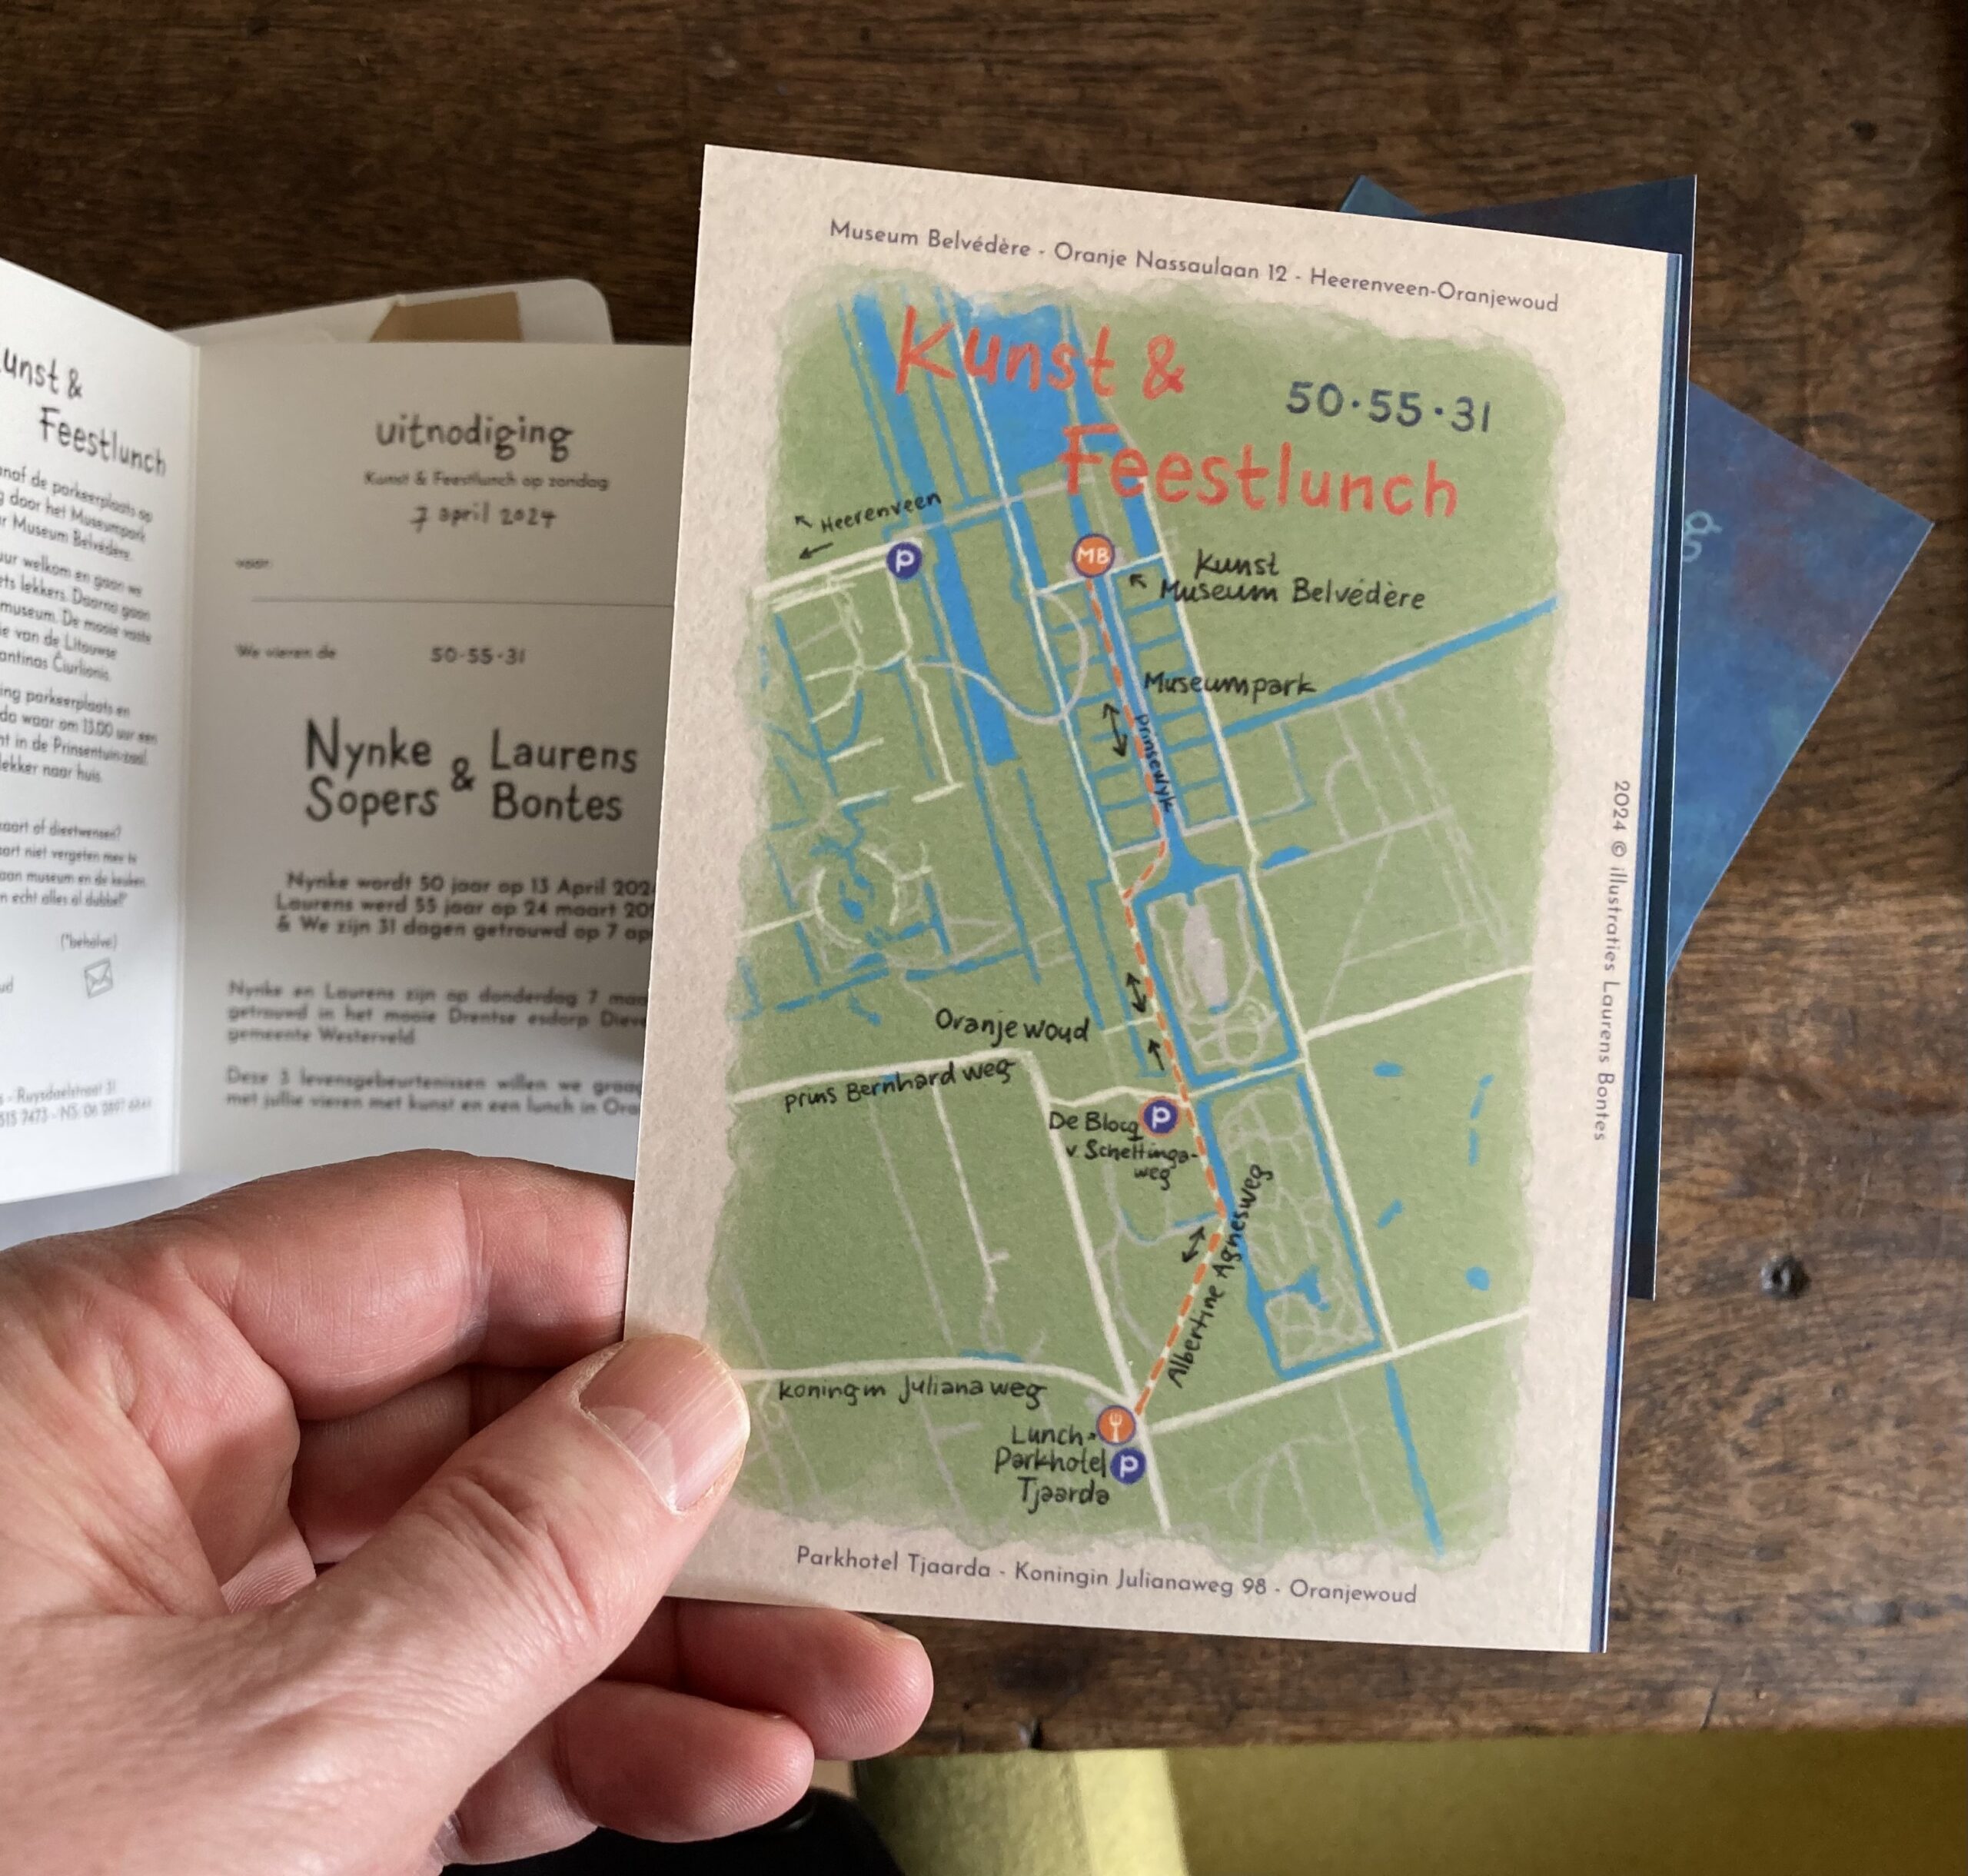 unst &
Feestlunch
naf de parkeerplaats op
door het Museumpark
r Museum Belvédère.
uur welkom en gaan we
ets lekkers. Daarna gaan
museum. De mooie vaste
ie van de Litouwse
antinas Čiurlionis.
ing parkeerplaats en
da waar om 13.00 uur een
nt in de Prinsentuin-zaal.
lekker naar huis.
kaart of dieetwensen?
aart niet vergeten mee te
aan museum en de keuken
n echt alles al dubbel!*
(*behalve)
ud
- Ruysdaelstraat 31
uitnodiging
Kunst & Feestlunch op zondag
7 april 2024
voor:
We vieren de 50·55·31
Nynke & Laurens
Sopers Bontes
Nynke wordt 50 jaar op 13 April 202
Laurens werd 55 jaar op 24 maart 20
& We zijn 31 dagen getrouwd op 7 ap
Nynke en Laurens zijn op donderdag 7 maa
getrouwd in het mooie Drentse esdorp Dieve
gemeente Westerveld.
Deze 3 levensgebeurtenissen willen we graa
met jullie vieren met kunst en een lunch in Ora
Museum Belvédère - Oranje Nassaulaan 12 - Heerenveen-Oranjewoud
Kunst &
50·55·31
Feestlunch
Heerenveen
P
MB
Kunst
Museum Belvédère
Museumpark
Prinsewyk
Oranjewoud
prins Bernhard weg
De Blocq P
v. Scheltinga-
weg
Albertine Agnesweg
koningin Juliana weg
Lunch
Parkhotel P
Tjaarda
Parkhotel Tjaarda - Koningin Julianaweg 98 - Oranjewoud
2024 © illustraties Laurens Bontes
g